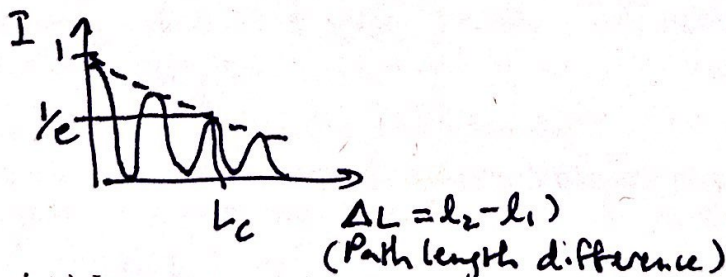 I
1
1/e
Lc
ΔL = l₂-l₁)
(Path length difference)